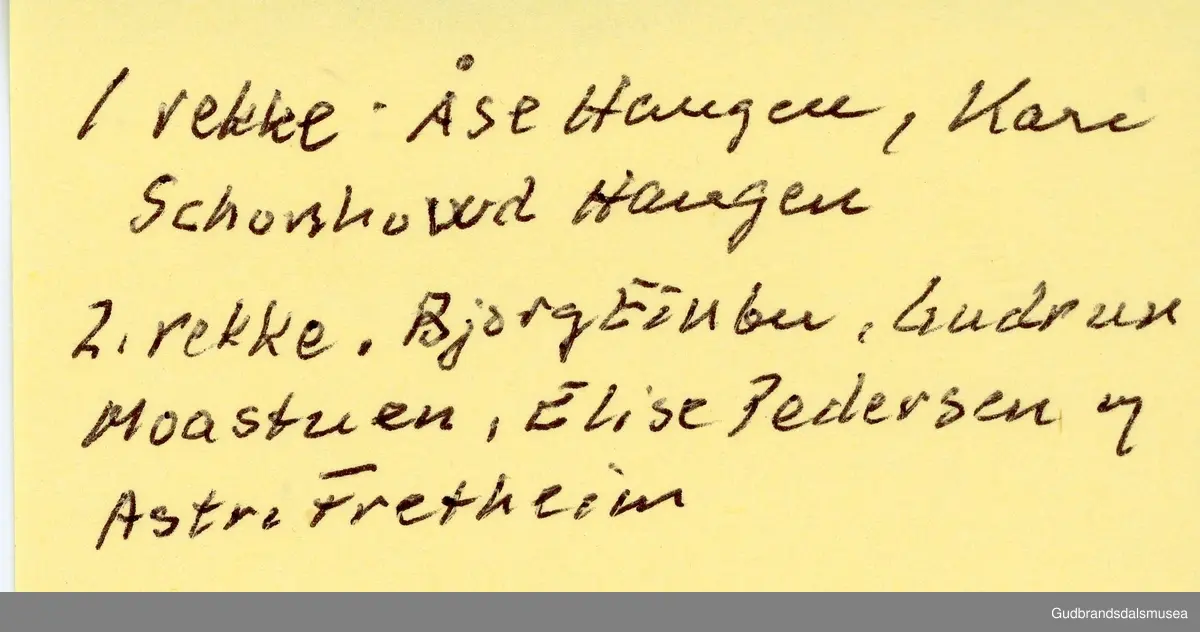 1 rekke. Åse Haugen, Kari
Haugen
2. rekke. Bjørg Einbu, Gudrun
Moastuen, Elise Pedersen og
Astri Fretheim
Gudbrandsdalsmusea